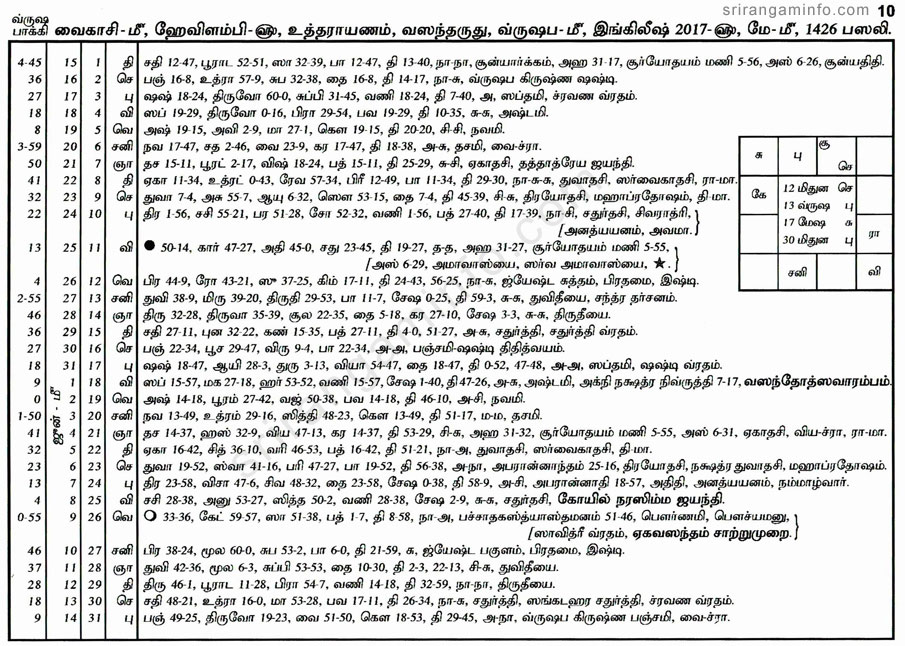 srirangaminfo.com 10
வ்ருஷ
பாக்கி வைகாசி-மீ, ஹேவிளம்பி-ஹு, உத்தராயணம், வஸந்தருது, வ்ருஷப-மீ, இங்கிலீஷ் 2017-ஹு, மே-மீ, 1426 பஸலி.
4-45 15 1 தி சதி 12-47, பூராட 52-51, ஸா 32-39, பா 12-47, தி 13-40, நா-நா, சூன்யார்க்கம், அஹ 31-17, சூர்யோதயம் மணி 5-56, அஸ் 6-26, சூன்யதிதி.
36 16 2 செ பஞ் 16-8, உத்ரா 57-9, சுப 32-38, தை 16-8, தி 14-17, நா-சு, வ்ருஷப கிருஷ்ண ஷஷ்டி.
27 17 3 பு ஷஷ் 18-24, திருவோ 60-0, சுப்பி 31-45, வணி 18-24, தி 7-40, அ, ஸப்தமி, ச்ரவண வ்ரதம்.
18 18 4 வி ஸப் 19-29, திருவோ 0-16, பிரா 29-54, பவ 19-29, தி 10-35, சு-சு, அஷ்டமி.
8 19 5 வெ அஷ் 19-15, அவி 2-9, மா 27-1, கௌ 19-15, தி 20-20, சி-சி, நவமி.
3-59 20 6 சனி நவ 17-47, சத 2-46, வை 23-9, கர 17-47, தி 18-38, அ-சு, தசமி, வை-ச்ரா.
50 21 7 ஞா தச 15-11, பூரட் 2-17, விஷ் 18-24, பத் 15-11, தி 25-29, சு-சி, ஏகாதசி, தத்தாத்ரேய ஜயந்தி.
41 22 8 தி ஏகா 11-34, உத்ரட் 0-43, ரேவ 57-34, பிரீ 12-49, பா 11-34, தி 29-30, நா-சு-சு, துவாதசி, ஸர்வைகாதசி, ரா-மா.
32 23 9 செ துவா 7-4, அசு 55-7, ஆயு 6-32, ஸௌ 53-15, தை 7-4, தி 45-39, சி-சு, திரயோதசி, மஹாப்ரதோஷம், தி-மா.
22 24 10 பு திர 1-56, சசி 55-21, பர 51-28, சோ 52-32, வணி 1-56, பத் 27-40, தி 17-39, நா-சி, சதுர்தசி, சிவராத்ரி,
[அனத்யயனம், அவமா.
13 25 11 வி ● 50-14, கார் 47-27, அதி 45-0, சது 23-45, தி 19-27, த-த, அஹ 31-27, சூர்யோதயம் மணி 5-55,
[அஸ் 6-29, அமாவாஸ்யை, ஸர்வ அமாவாஸ்யை, ★.
4 26 12 வெ பிர 44-9, ரோ 43-21, ஸு 37-25, கிம் 17-11, தி 24-43, 56-25, நா-சு, ஜ்யேஷ்ட சுத்தம், பிரதமை, இஷ்டி.
2-55 27 13 சனி துவி 38-9, மிரு 39-20, திருதி 29-53, பா 11-7, சேஷ 0-25, தி 59-3, சு-சு, துவிதீயை, சந்த்ர தர்சனம்.
46 28 14 ஞா திரு 32-28, திருவா 35-39, சூல 22-35, தை 5-18, கர 27-10, சேஷ 3-3, சு-சு, திருதீயை.
36 29 15 தி சதி 27-11, புன 32-22, கண் 15-35, பத் 27-11, தி 4-0, 51-27, அ-சு, சதுர்த்தி, சதுர்த்தி வ்ரதம்.
27 30 16 செ பஞ் 22-34, பூச 29-47, விரு 9-4, பா 22-34, அ-அ, பஞ்சமி-ஷஷ்டி திதித்வயம்.
18 31 17 பு ஷஷ் 18-47, ஆயி 28-3, துரு 3-13, வியா 54-47, தை 18-47, தி 0-52, 47-48, அ-அ, ஸப்தமி, ஷஷ்டி வ்ரதம்.
ஜூன்-மீ
9 1 18 வி ஸப் 15-57, மக 27-18, ஹர் 53-52, வணி 15-57, சேஷ 1-40, தி 47-26, அ-சு, அஷ்டமி, அக்நி நக்ஷத்ர நிவ்ருத்தி 7-17, வஸந்தோத்ஸவாரம்பம்.
0 2 19 வெ அஷ் 14-18, பூரம் 27-42, வஜ் 50-38, பவ 14-18, தி 46-10, அ-சி, நவமி.
1-50 3 20 சனி நவ 13-49, உத்ரம் 29-16, ஸித்தி 48-23, கௌ 13-49, தி 51-17, ம-ம, தசமி.
41 4 21 ஞா தச 14-37, ஹஸ் 32-9, விய 47-13, கர 14-37, தி 53-29, சி-சு, அஹ 31-32, சூர்யோதயம் மணி 5-55, அஸ் 6-31, ஏகாதசி, விய-ச்ரா, ரா-மா.
32 5 22 தி ஏகா 16-42, சித் 36-10, வரி 46-53, பத் 16-42, தி 51-21, நா-அ, துவாதசி, ஸர்வைகாதசி, தி-மா.
23 6 23 செ துவா 19-52, ஸ்வா 41-16, பரி 47-27, பா 19-52, தி 56-38, அ-நா, அபரான்னாந்தம் 25-16, திரயோதசி, நக்ஷத்ர துவாதசி, மஹாப்ரதோஷம்.
13 7 24 பு திர 23-58, விசா 47-6, சிவ 48-32, தை 23-58, சேஷ 0-38, தி 58-9, அ-சி, அபரான்னாதி 18-57, அதிதி, அனத்யயனம், நம்மாழ்வார்.
4 8 25 வி சசி 28-38, அனு 53-27, ஸித்த 50-2, வணி 28-38, சேஷ 2-9, சு-சு, சதுர்தசி, கோயில் நரஸிம்ம ஜயந்தி.
0-55 9 26 வெ ○ 33-36, கேட் 59-57, ஸா 51-38, பத் 1-7, தி 8-58, நா-அ, பச்சாதகஸ்த்யாஸ்தமனம் 51-46, பௌர்ணமி, பௌச்யமனு,
[ஸாவித்ரீ வ்ரதம், ஏகவஸந்தம் சாற்றுமுறை.
46 10 27 சனி பிர 38-24, மூல 60-0, சுப 53-2, பா 6-0, தி 21-59, சு, ஜ்யேஷ்ட பகுளம், பிரதமை, இஷ்டி.
37 11 28 ஞா துவி 42-36, மூல 6-3, சுப்பி 53-53, தை 10-30, தி 2-3, 22-13, சி-சு, துவிதீயை.
28 12 29 தி திரு 46-1, பூராட 11-28, பிரா 54-7, வணி 14-18, தி 32-59, நா-நா, திருதீயை.
18 13 30 செ சதி 48-21, உத்ரா 16-0, மா 53-28, பவ 17-11, தி 26-34, நா-சு, சதுர்த்தி, ஸங்கடஹர சதுர்த்தி, ச்ரவண வ்ரதம்.
9 14 31 பு பஞ் 49-25, திருவோ 19-23, வை 51-50, கௌ 18-53, தி 29-45, அ-நா, வ்ருஷப கிருஷ்ண பஞ்சமி, வை-ச்ரா.
சு பு சூ செ
கே 12 மிதுன செ
13 வ்ருஷ பு
17 மேஷ சு
30 மிதுன பு
ரா
சனி வி
srirangaminfo.com